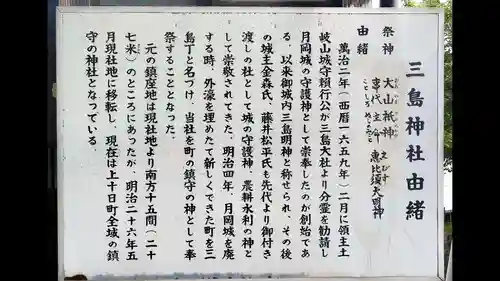 三島神社由緒
祭神
大山祇神
事代主命 恵比須大明神
由緒
萬治二年(西暦一六五九年)二月に領主土
岐山城守頼行公が三島大社より分霊を勧請し
月岡城の守護神として崇奉したのが創始であ
る、以来御城内三島明神と称せられ、その後
の城主金森氏、藤井松平氏も先代より御付き
渡しの社として城の守護神、農耕水利の神と
して崇敬されてきた、明治四年、月岡城を廃
する時、外濠を埋めたて新しくできた町を三
島丁と名づけ、当社を町の鎮守の神として奉
祭することとなった。
元の鎮座地は現社地より南方十五間(二十
七米)のところにあったが、明治二十六年五
月現社地に移転し、現在は上十日町全域の鎮
守の神社となっている。